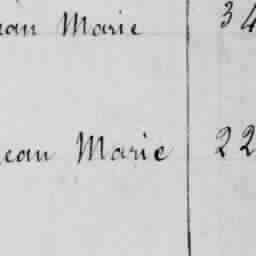 ean Marie 34
ean Marie 22